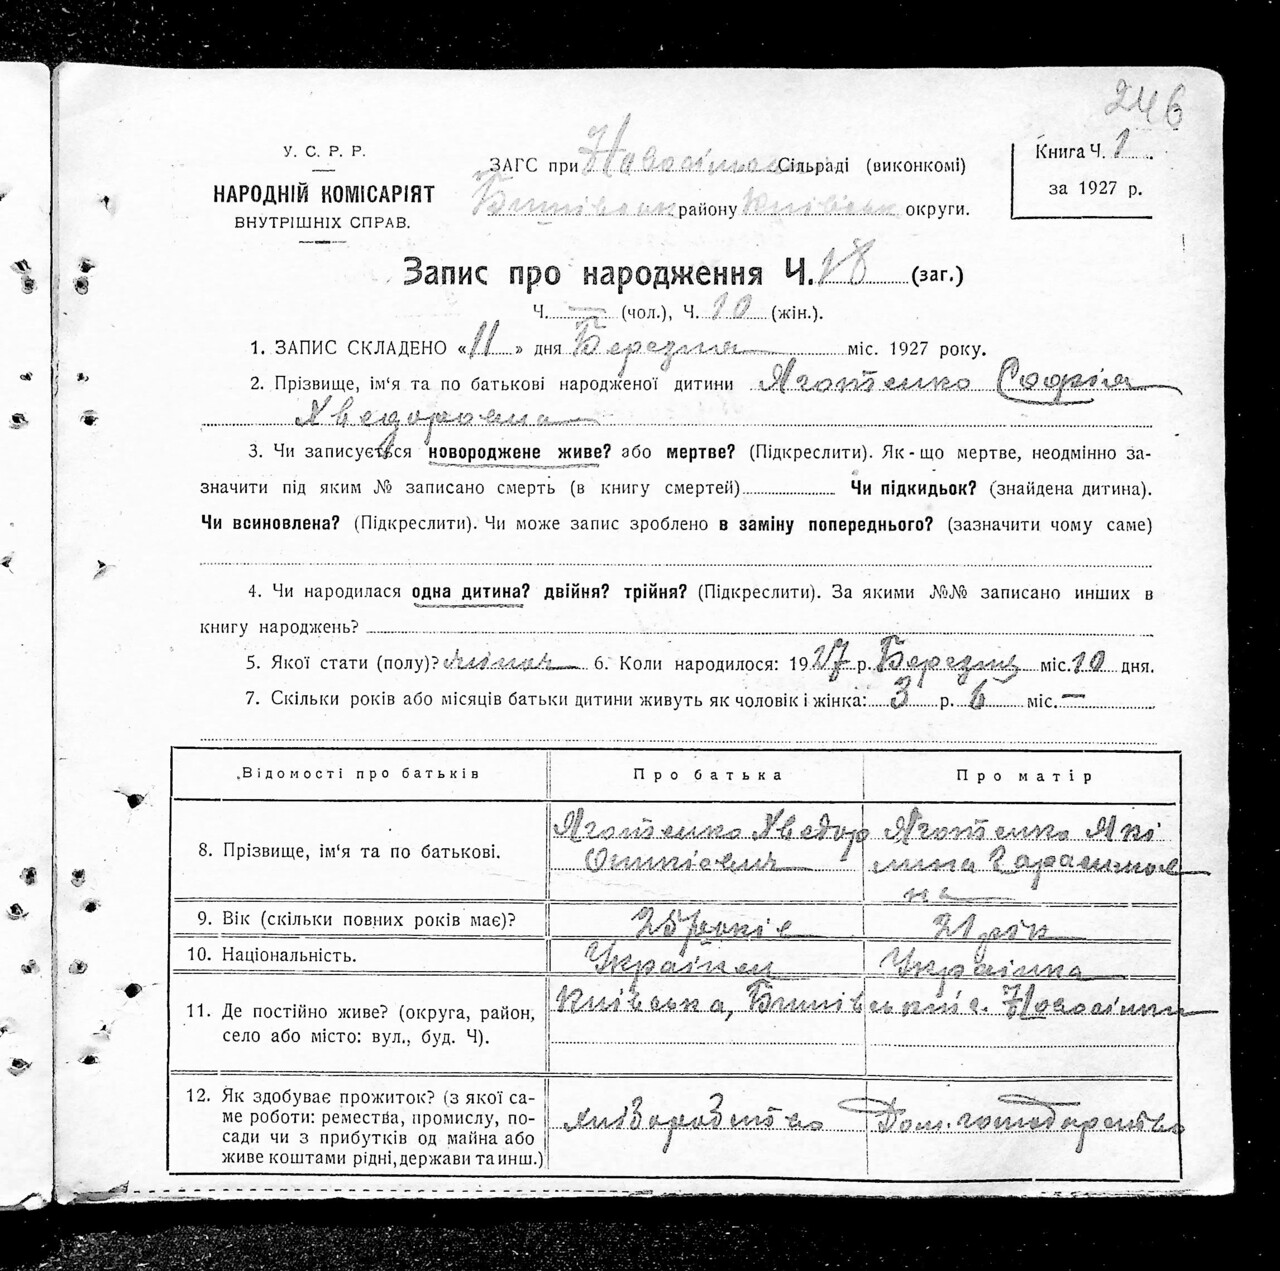 246
У. С. Р. Р.
НАРОДНІЙ КОМІСАРІЯТ
ВНУТРІШНІХ СПРАВ.
ЗАГС при Новосілської Сільраді (виконкомі)
Бишівськ району Київськ округи.
Книга Ч. 1
за 1927 р.
Запис про народження Ч. 18 (заг.)
Ч. — (чол.), Ч. 10 (жін.).
1. ЗАПИС СКЛАДЕНО «11» дня Березня міс. 1927 року.
2. Прізвище, ім'я та по батькові народженої дитини Яготенко Софія
Хведоровна
3. Чи записується новороджене живе? або мертве? (Підкреслити). Як-що мертве, неодмінно за-
значити під яким № записано смерть (в книгу смертей) Чи підкидьок? (знайдена дитина).
Чи всиновлена? (Підкреслити). Чи може запис зроблено в заміну попереднього? (зазначити чому саме)
4. Чи народилася одна дитина? двійня? трійня? (Підкреслити). За якими №№ записано инших в
книгу народжень?
5. Якої стати (полу)? жіноч 6. Коли народилося: 1927 р. Березня міс. 10 дня.
7. Скільки років або місяців батьки дитини живуть як чоловік і жінка: 3 р. 6 міс. —
Відомості про батьків Про батька Про матір
8. Прізвище, ім'я та по батькові. Яготенко Хведор Яготенко Які
мина Гарасимов
на
9. Вік (скільки повних років має)? 25 років 21 рік
10. Національність. Українец Українка
11. Де постійно живе? (округа, район, Київська, Бишівський с. Новосілки
село або місто: вул., буд. Ч).
12. Як здобуває прожиток? (з якої са-
ме роботи: ремества, промислу, по- хліборобство Дом. господарство
сади чи з прибутків од майна або
живе коштами рідні, держави та инш.)